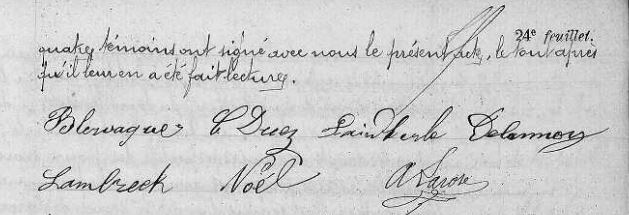 24e feuillet.
quatre témoins ont signé avec nous le présent acte, le tout après
qu'il leur en a été fait lecture.
Blervaque C Duez Lainkerle Delannoy
Lambrech Noël A Larose